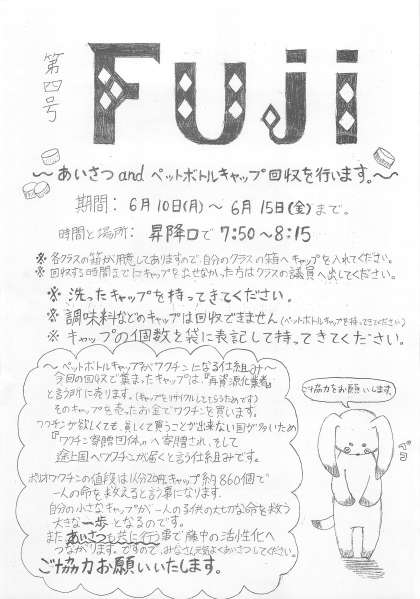 第四号
Fuji
～あいさつ and ペットボトルキャップ回収を行います。～
期間：6月10日(月)～6月15日(金)まで。
時間と場所：昇降口で7:50～8:15
※各クラスの箱が用意してありますので、自分のクラスの箱へキャップを入れてください。
※回収する時間までにキャップを出せなかった方はクラスの議員へ出してください。
※洗ったキャップを持ってきてください。
※調味料などのキャップは回収できません(ペットボトルキャップを持ってきてください)
※キャップの個数を袋に表記して持ってきてください。
～ペットボトルキャップがワクチンになる仕組み～
今回の回収で集まったキャップは、『再資源化業者』
と言う所に売ります。(キャップをリサイクルしてもらうためです)
そのキャップを売ったお金でワクチンを買います。
ワクチンが欲しくても、貧しくて買うことが出来ない国が多いため
『ワクチン寄贈団体』へ寄贈され、そして
途上国へワクチンが届くと言う仕組みです。
ポリオワクチンの値段は1人分20円、キャップ約860個で
一人の命を救えると言う事になります。
自分の小さなキャップが一人の子供の大切な命を救う
大きな一歩となるのです。
また、あいさつも共に行う事で藤中の活性化へ
つながります。ですので、みなさん元気よくあいさつしてください。
ご協力お願いいたします。
ご協力をお願いします。